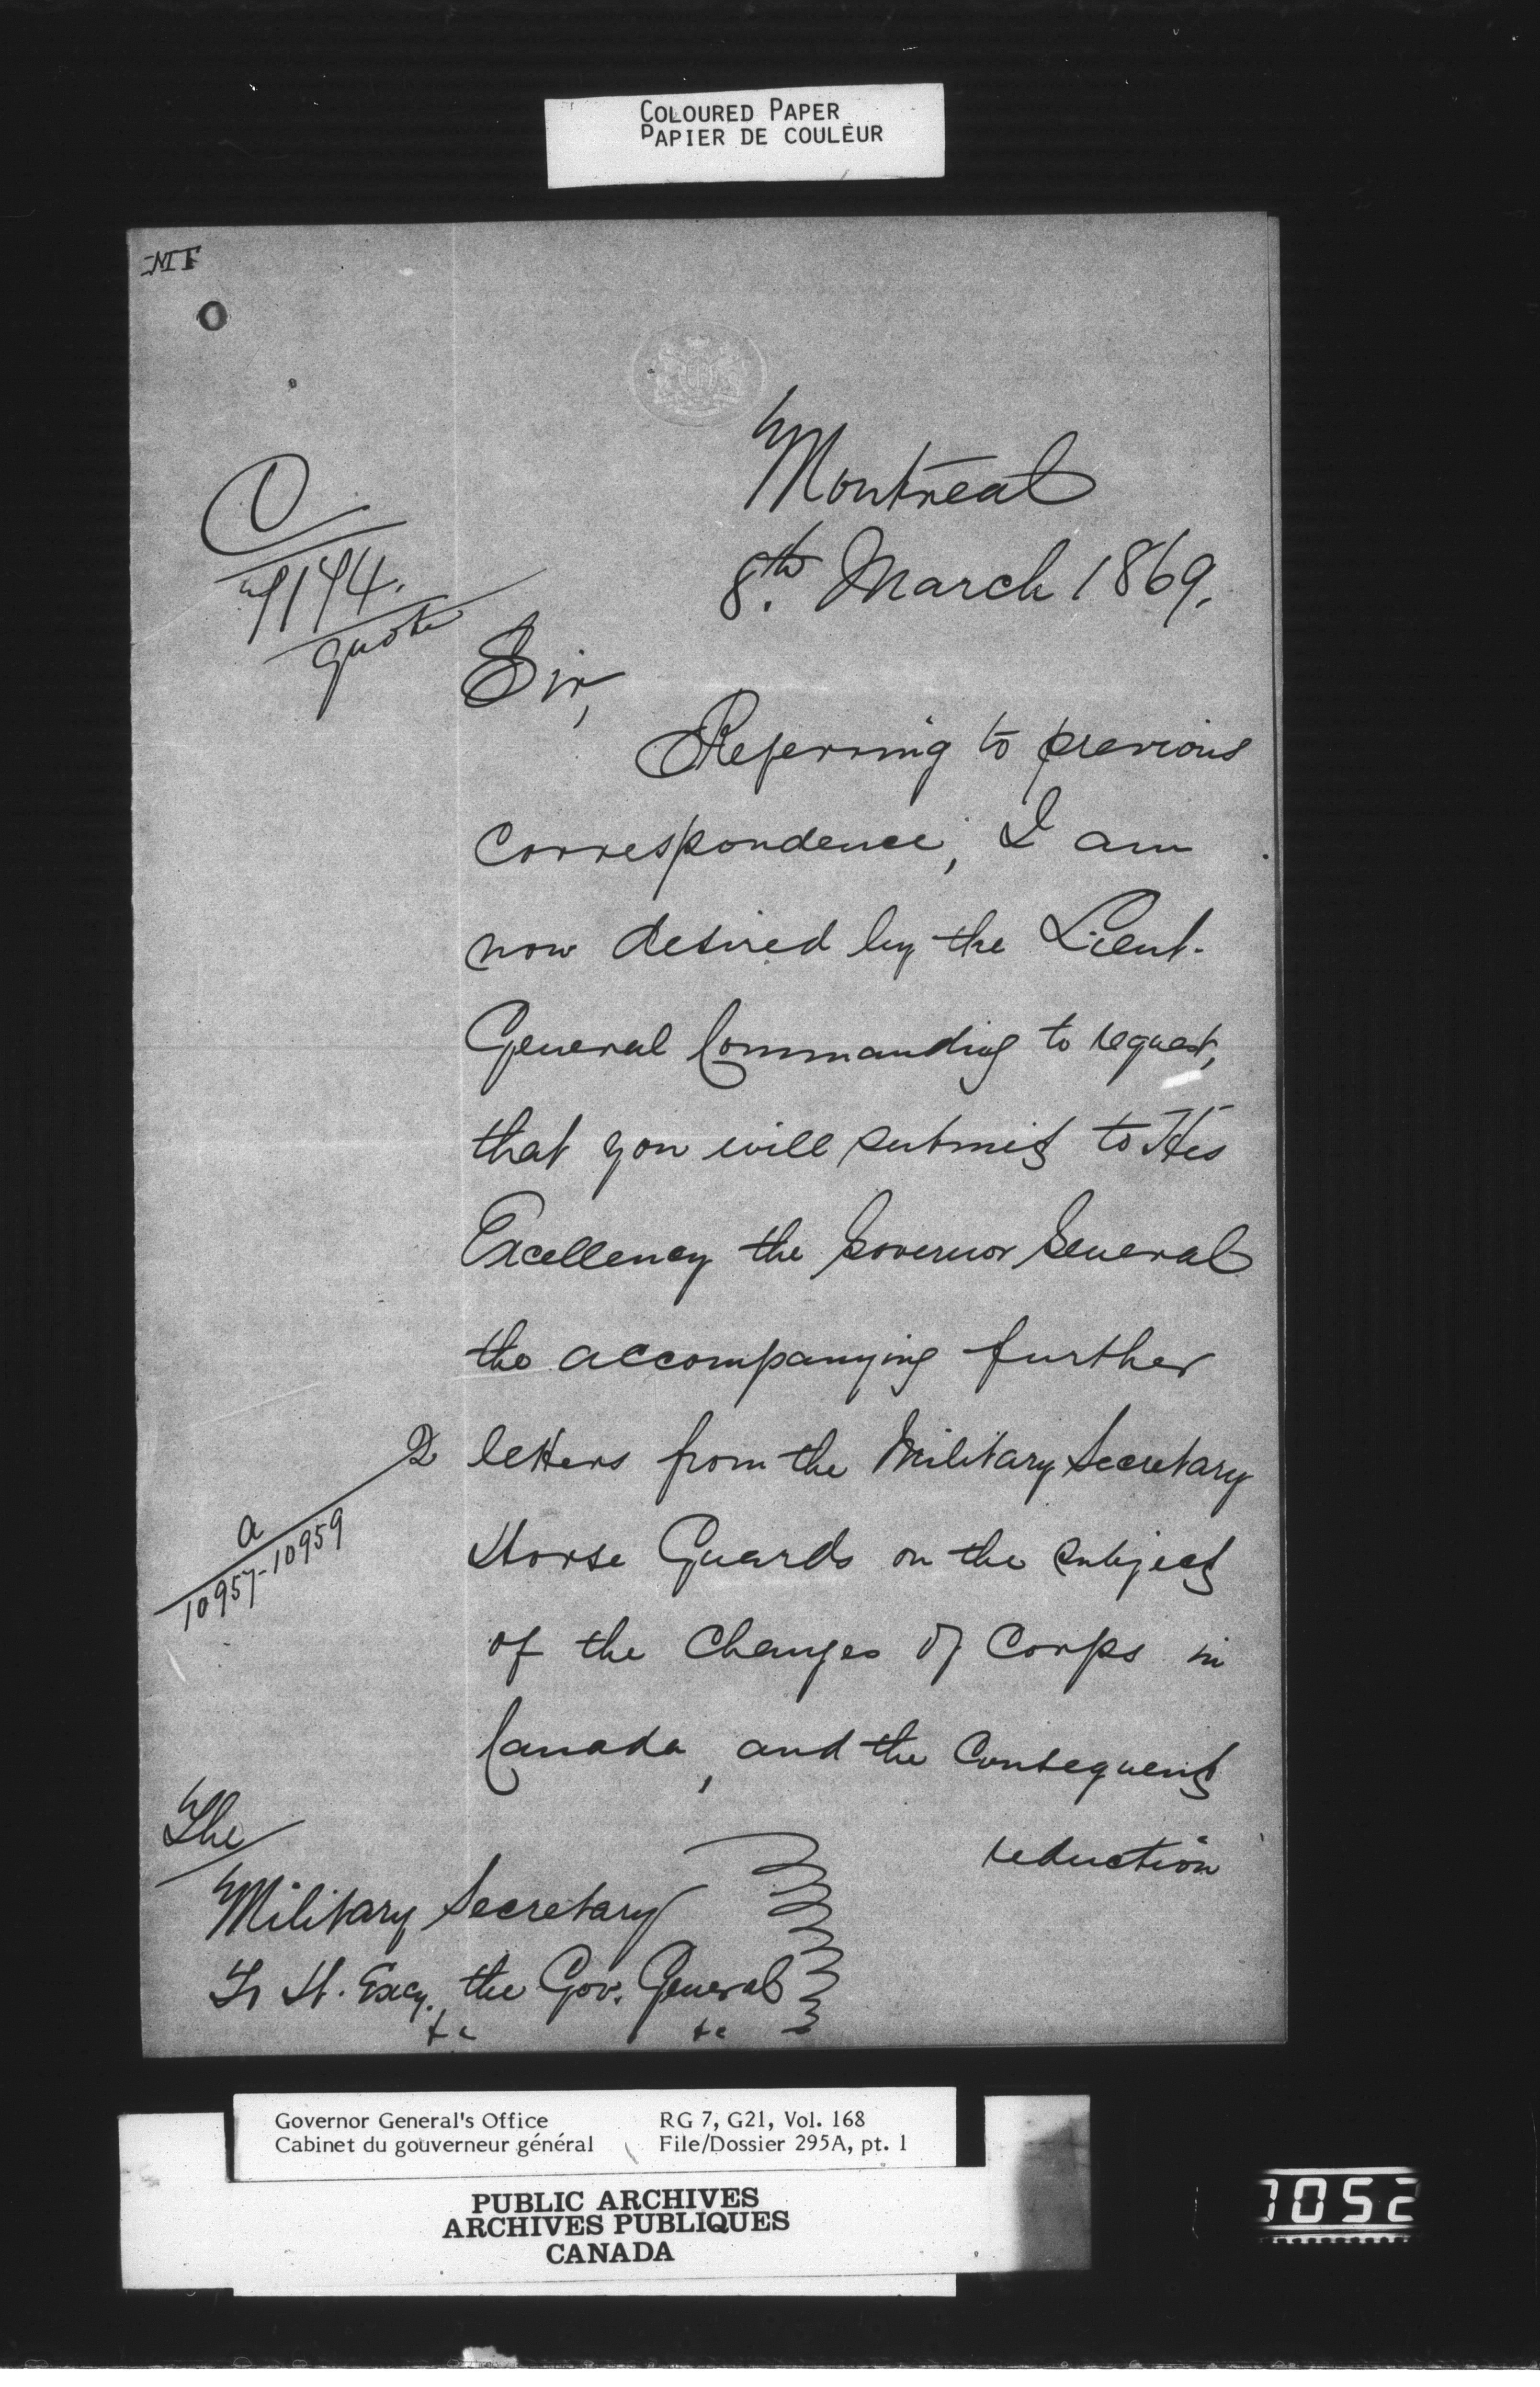 COLOURED PAPER
PAPIER DE COULEUR
Montreal
8th. March 1869.
C
9194.
quote
Sir,
Referring to previous
correspondence, I am
now desired by the Lieut.
General Commanding to request,
that you will submit to His
Excellency the Governor General
the accompanying further
2 letters from the Military Secretary
a
10957-10959
Horse Guards on the subject
of the Changes of Corps in
Canada, and the Consequent
reduction
The
Military Secretary
To H. Excy. the Gov. General
&c &c
Governor General's Office RG 7, G21, Vol. 168
Cabinet du gouverneur général File/Dossier 295A, pt. 1
PUBLIC ARCHIVES
ARCHIVES PUBLIQUES
CANADA
1052